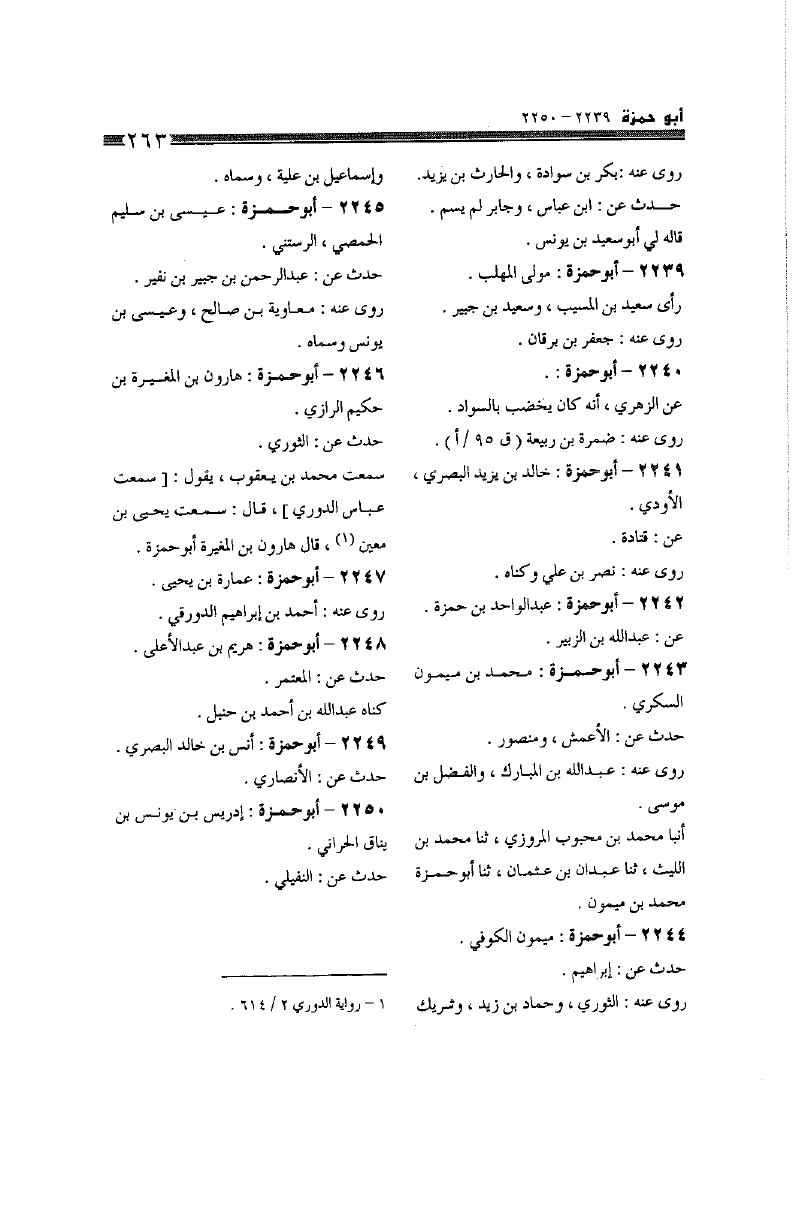 أبو حمزة ٢٢٣٩ – ٢٢٥٠
٢٦٣
روى عنه : بكر بن سوادة ، والحارث بن يزيد.
حــدث عن : ابن عباس ، وجابر لم يسم .
قاله لي أبو سعيد بن يونس .
٢٢٣٩ – أبو حمزة : مولى المهلب .
رأى سعيد بن المسيب ، وسعيد بن جبير .
روى عنه : جعفر بن برقان .
٢٢٤٠ – أبو حمزة : .
عن الزهري ، أنه كان يخضب بالسواد .
روى عنه : ضمرة بن ربيعة ( ق ٩٥ / أ ) .
٢٢٤١ – أبو حمزة : خالد بن يزيد البصري ،
الأودي .
عن : قتادة .
روى عنه : نصر بن علي وكناه .
٢٢٤٢ – أبو حمزة : عبدالواحد بن حمزة .
عن : عبدالله بن الزبير .
٢٢٤٣ – أبو حــمــزة : محمد بن ميمون
السكري .
حدث عن : الأعمش ، ومنصور .
روى عنه : عبدالله بن المبارك ، والفضل بن
موسى .
أنبا محمد بن محبوب المروزي ، ثنا محمد بن
الليث ، ثنا عبدان بن عثمان ، ثنا أبو حمزة
محمد بن ميمون .
٢٢٤٤ – أبو حمزة : ميمون الكوفي .
حدث عن : إبراهيم .
روى عنه : الثوري ، وحماد بن زيد ، وشريك
وإسماعيل بن علية ، وسماه .
٢٢٤٥ – أبو حــمــزة : عيسى بن سليم
الحمصي ، الرستني .
حدث عن : عبدالرحمن بن جبير بن نفير .
روى عنه : معاوية بن صالح ، وعيسى بن
يونس وسماه .
٢٢٤٦ – أبو حمزة : هارون بن المغيرة بن
حكيم الرازي .
حدث عن : الثوري .
سمعت محمد بن يعقوب ، يقول : [ سمعت
عباس الدوري ] ، قال : سمعت يحيى بن
معين (١) ، قال هارون بن المغيرة أبو حمزة .
٢٢٤٧ – أبو حمزة : عمارة بن يحيى .
روى عنه : أحمد بن إبراهيم الدورقي .
٢٢٤٨ – أبو حمزة : هريم بن عبدالأعلى .
حدث عن : المعتمر .
كناه عبدالله بن أحمد بن حنبل .
٢٢٤٩ – أبو حمزة : أنس بن خالد البصري .
حدث عن : الأنصاري .
٢٢٥٠ – أبو حمزة : إدريس بن يونس بن
يناق الحراني .
حدث عن : النفيلي .
١ – رواية الدوري ٢ / ٦١٤ .